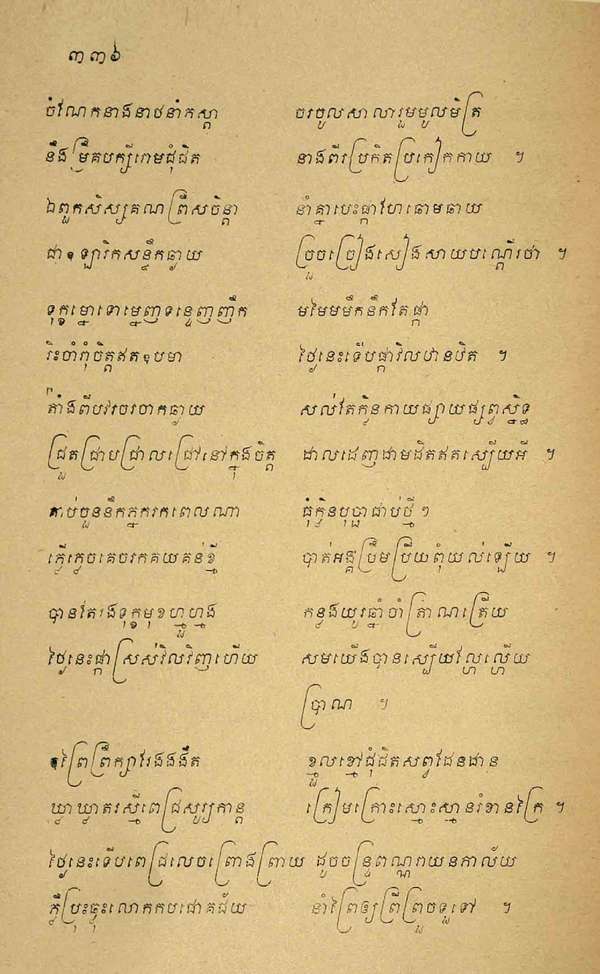 ៣៣៦
ចំណែកនាងនាថនាំកស្តា ចរចូលសាលារួមមូលមិត្រ
នឹងម្រឹគបក្សីរោមជុំជិត នាងពីរប្រកិតប្រកៀកកាយ ។
ឯពួកសិស្សគណព្រឹសចិន្តា នាំគ្នាបេះផ្កាហែឆោមឆាយ
ជាឡារិកសន្ធឹកឆ្វាយ ច្រួចច្រៀងសៀងសាយបណ្តើរថា ។
ទុក្ខម្នោទោម្នេញទន្ទេញញឹក មមៃមមឹកនឹកតែផ្កា
រិះចាំរុំចិត្តឥតឧបមា ថ្ងៃនេះទើបផ្កាវិលឋានឋិត ។
តាំងពីបវរចរចាកឆ្ងាយ សល់តែក្លិនកាយផ្សាយផ្សព្វស្និទ្ធ
ជ្រួតជ្រាបជ្រាលជ្រៅនៅក្នុងចិត្ត ជាលដេញជាមជិតឥតស្បើយអី ។
តាប់ចួននឹកភ្នករកពេលណា ធុំក្លិនបុប្ផាជាប់ថ្មីៗ
ក្មើក្មេចគេចរកគយគន់ខ្មី បាត់អង្គប្រឹមប្រិយពុំយល់ឡើយ ។
បានតែរងទុក្ខមុខហ្មួហ្មង កន្លងយូរឆ្នាំចាំត្រាណត្រើយ
ថ្ងៃនេះផ្កាស្រស់វិលវិញហើយ សមយើងបានស្បើយល្ហែល្ហើយ
ប្រាណ ។
ឧព្រៃព្រឹក្សារែងងងឹត ខ្មួលខ្មៅជុំជិតសព្វដែនដាន
ឃ្លាឃ្លាតរស្មីពេជ្រសូរ្យកាន្ត ក្រៀមក្រោះស្មោះស្មានរំខានក្រៃ ។
ថ្ងៃនេះទើបពេជ្រលេចព្រោងព្រាយ ដូចចន្ទ្រពណ្ណរាយនភាល័យ
ភ្លឺប្រុះធ្លុះលោកកបជោគជ័យ នាំព្រៃឲ្យព្រឺព្រួចទួទៅ ។